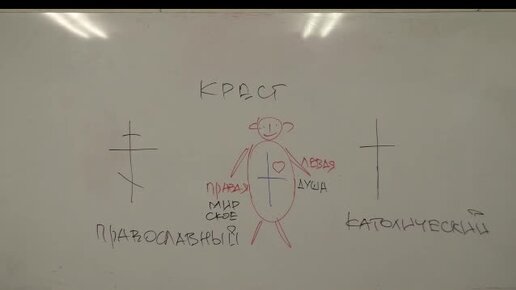 КРЕСТ
ПРАВАЯ
МИР
СКОЕ
ЛЕВАЯ
ДУША
ПРАВОСЛАВНЫЙ
КАТОЛИЧЕСКИЙ